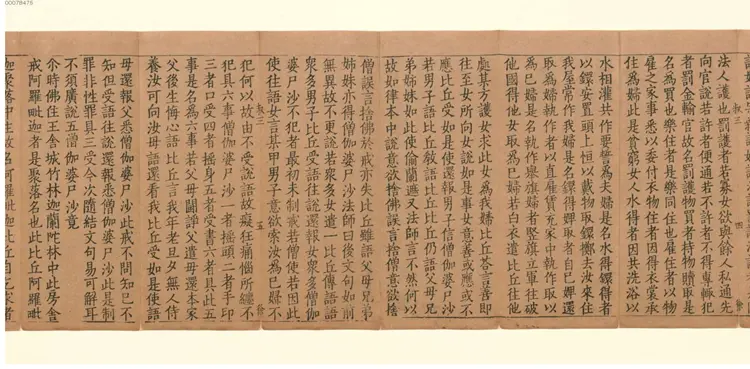 00078475
法人護也罰護者若寡女欲與餘人私通先
向官說若許者便通若不許者不得專輒犯
者罰金輸官故名罰護物買者持物贖取是
名為買也樂住者是樂同住也雇住者以物
雇之家事悉以委付衣物住者因得衣裳承
住為婦此是貧窮女人水得者因共洗浴以
水相灌共作要誓為夫婦是名水得鐶得者
以鐶安置頭上恒以戴物取鐶擲去汝來住
我屋常作我婦是名鐶得婢取者自己婢還
取為婦執作者以直雇賃充家中執作取以
為己婦是名執作舉旗婦者竪旗立軍往破
他國得他女取為己婦若白衣遣比丘往他
處某方護女求此女為我婦比丘荅言善即
往至女所向女說如是事女意善或應或不
應比丘受如是使還報男子信僧伽婆尸沙
若男子語比丘敘語比丘比丘仍語父母兄
弟姊妹如此使偷蘭遮又法師言不然何以
故如律本中說意欲捨佛誤言捨僧意欲捨
僧誤言捨佛於戒亦失比丘雖語父母兄弟
姊妹亦得僧伽婆尸沙法師曰後文句如前
無異故不更說若眾多女遣一比丘傳語語
眾多男子比丘受語往說還報女眾多僧伽
婆尸沙不犯者最初未制戒若僧使若因此
使往語女言某甲男子意欲索汝為己婦不
犯何以故由不受說語故癡狂痛惱所纏不
犯具六事僧伽婆尸沙一者搖頭二者手印
三者口受四者搖身五者受書六者具此五
事是名為六事若父母鬬諍父遣母還本家
父後生悔心語比丘言我年老旦夕無人侍
養汝可向汝母語還看我比丘受如是使語
母還報父悉僧伽婆尸沙此戒不問知已不
知但受語往說還報悉僧伽婆尸沙此是制
罪非性罪具三受今次隨結文句易可解耳
不須廣說五僧伽婆尸沙竟
尒時佛住王舍城竹林迦蘭陀林中此房舍
戒阿羅毗迦者是聚落名也此比丘阿羅毗